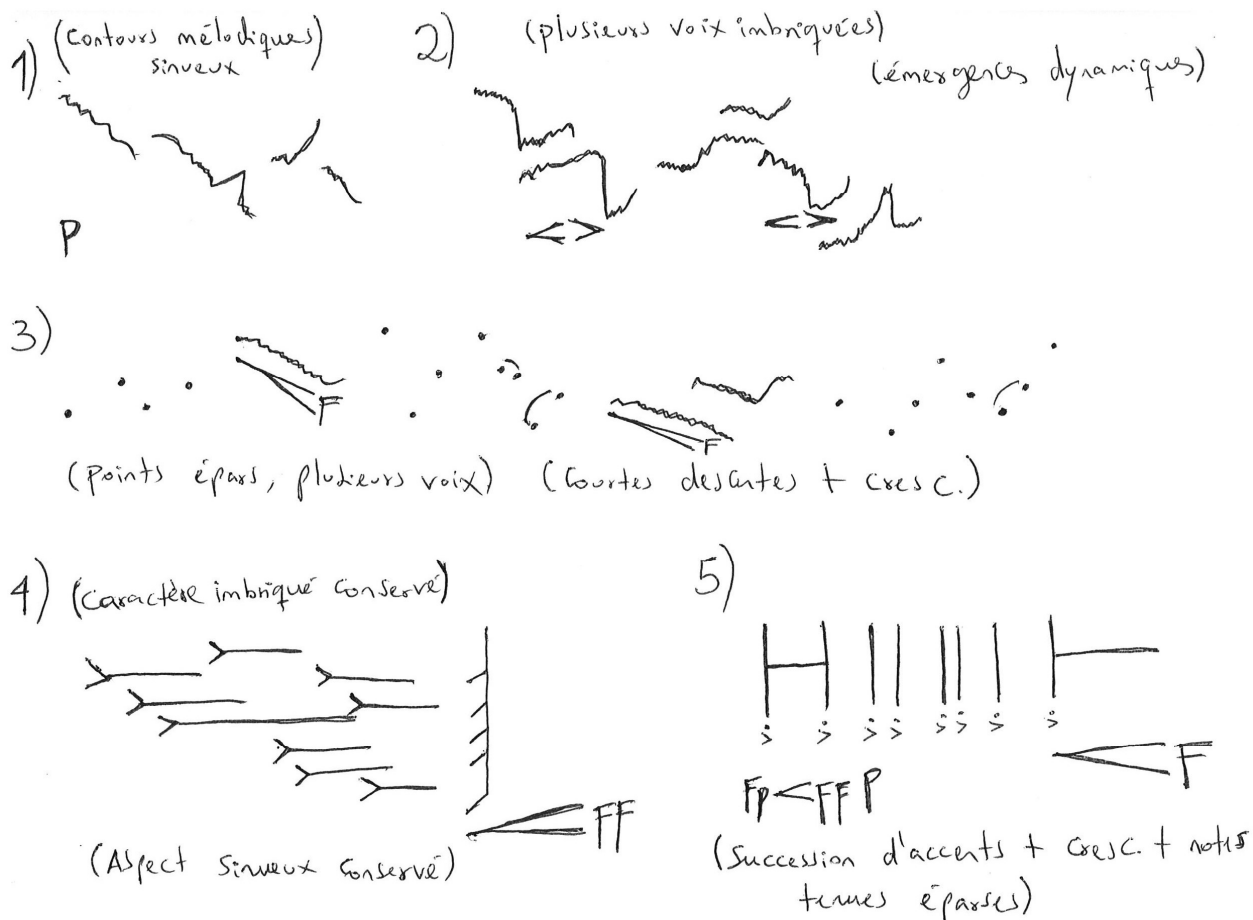 1) (Contours mélodiques)
sinueux
P
2) (plusieurs voix imbriquées)
(émergences dynamiques)
< >
< >
3)
F
F
(points épars, plusieurs voix) (Courtes descentes + cresc.)
4) (Caractère imbriqué conservé)
FF
(Aspect sinueux conservé)
5)
> > > > > > > >
F
Fp < FF P
(Succession d'accents + cresc. + notes
tenues éparses)